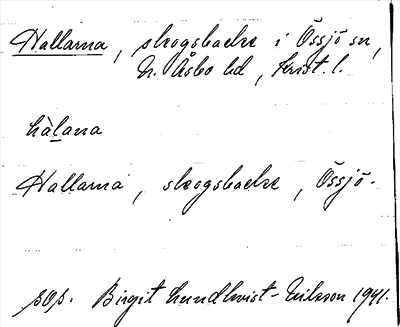 Hallarna, skogsbacke i Össjö sn,
N. Åsbo hd, Krist. l.
hàlana
Hallarna, skogsbacke, Össjö.
pop. Birgit Lundkvist-Eriksson 1941.